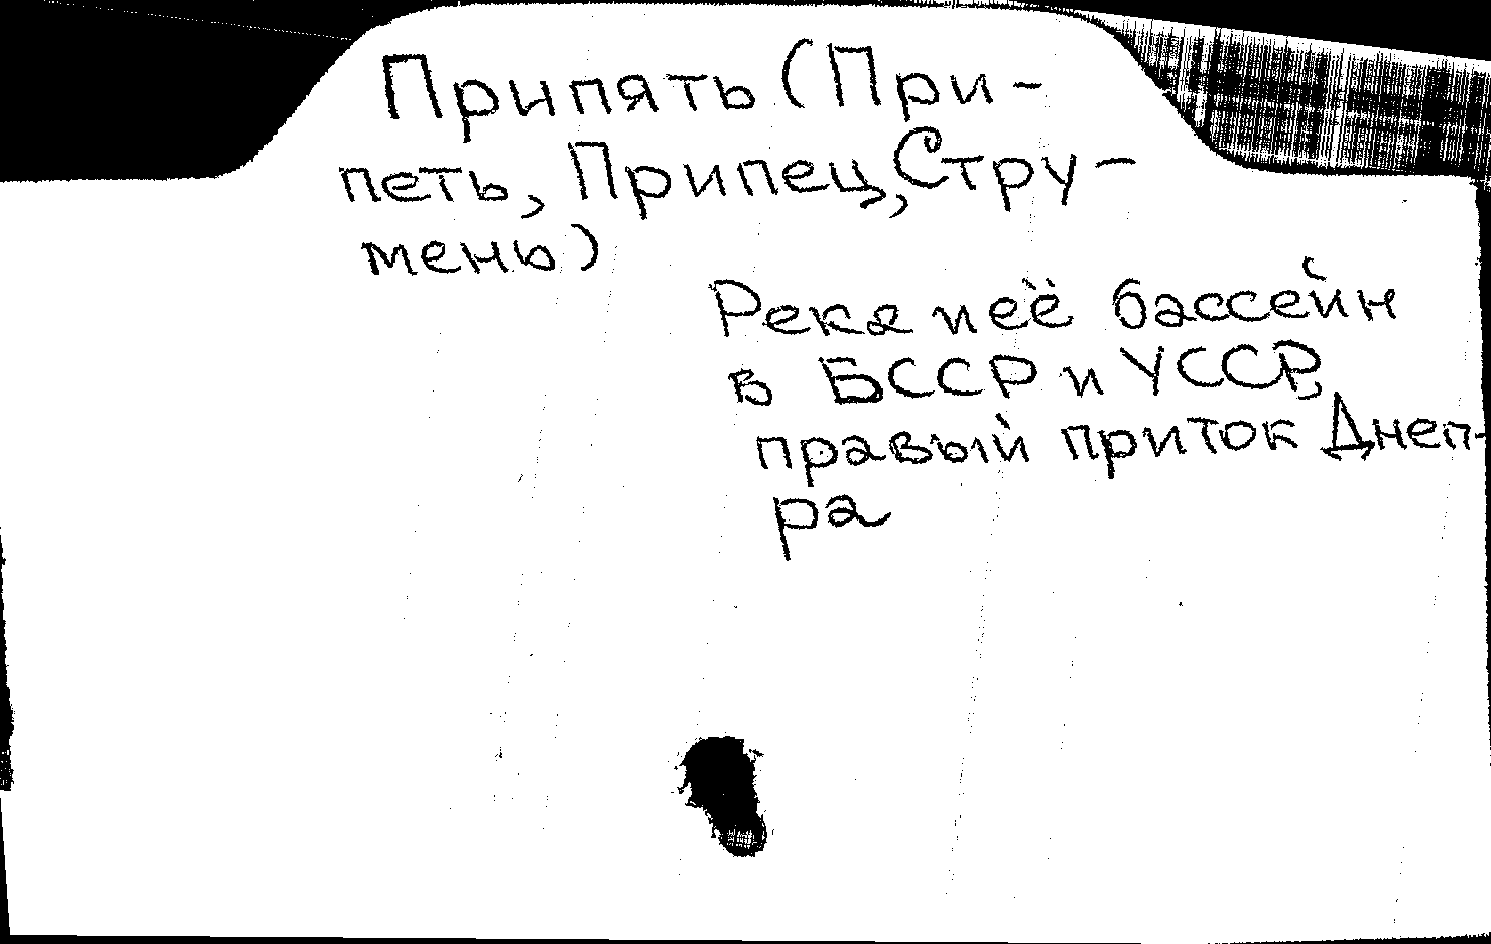 Припять (При-
петь, Припец, Стру-
мень)
Река и её бассейн
в БССР и УССР,
правый приток Днеп-
ра